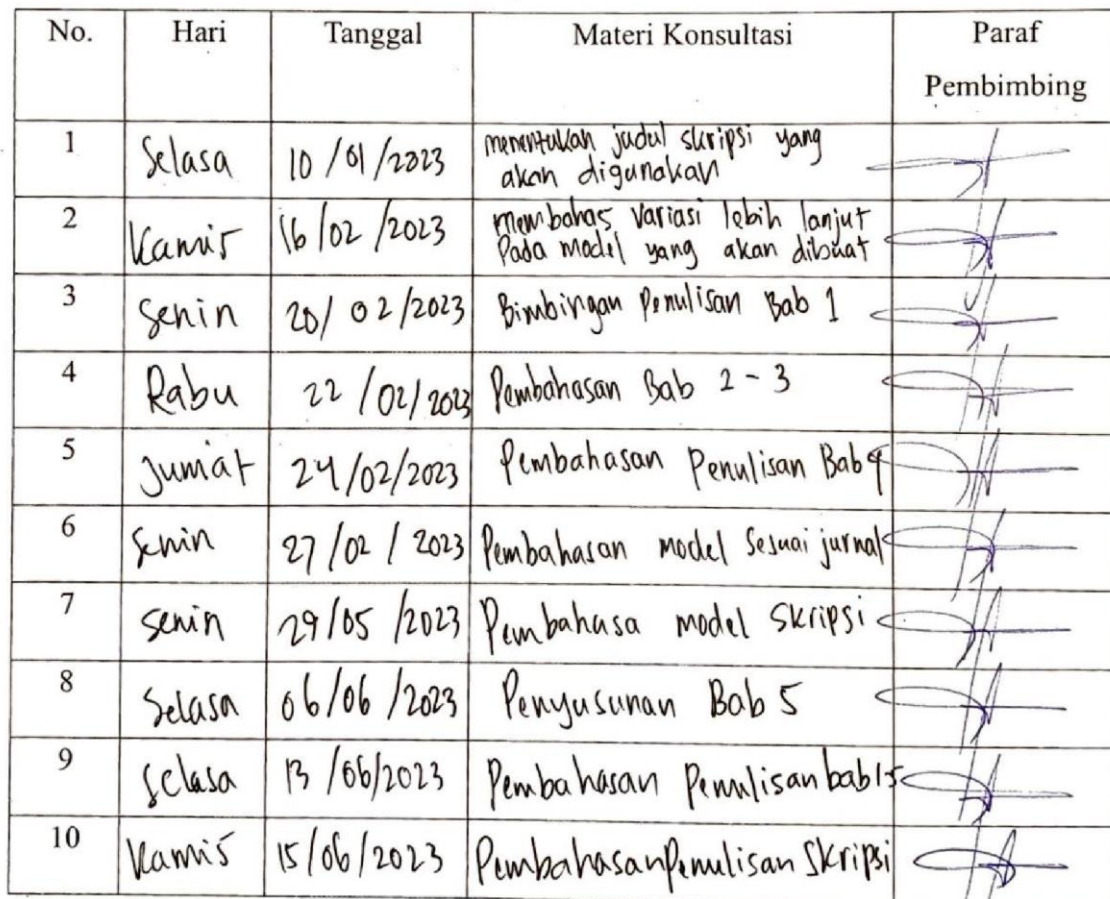 No. Hari Tanggal Materi Konsultasi Paraf
Pembimbing
1 Selasa 10/01/2023 menentukan judul skripsi yang
akan digunakan
2 Kamis 16/02/2023 membahas variasi lebih lanjut
Pada model yang akan dibuat
3 Senin 20/02/2023 Bimbingan Penulisan Bab 1
4 Rabu 22/02/2023 Pembahasan Bab 2-3
5 Jumiat 24/02/2023 Pembahasan Penulisan Bab 4
6 Senin 27/02/2023 Pembahasan model Sesuai jurnal
7 Senin 29/05/2023 Pembahasa model Skripsi
8 Selasa 06/06/2023 Penyusunan Bab 5
9 Selasa 13/06/2023 Pembahasan Penulisan bab 1-5
10 Kamis 15/06/2023 Pembahasan Penulisan Skripsi